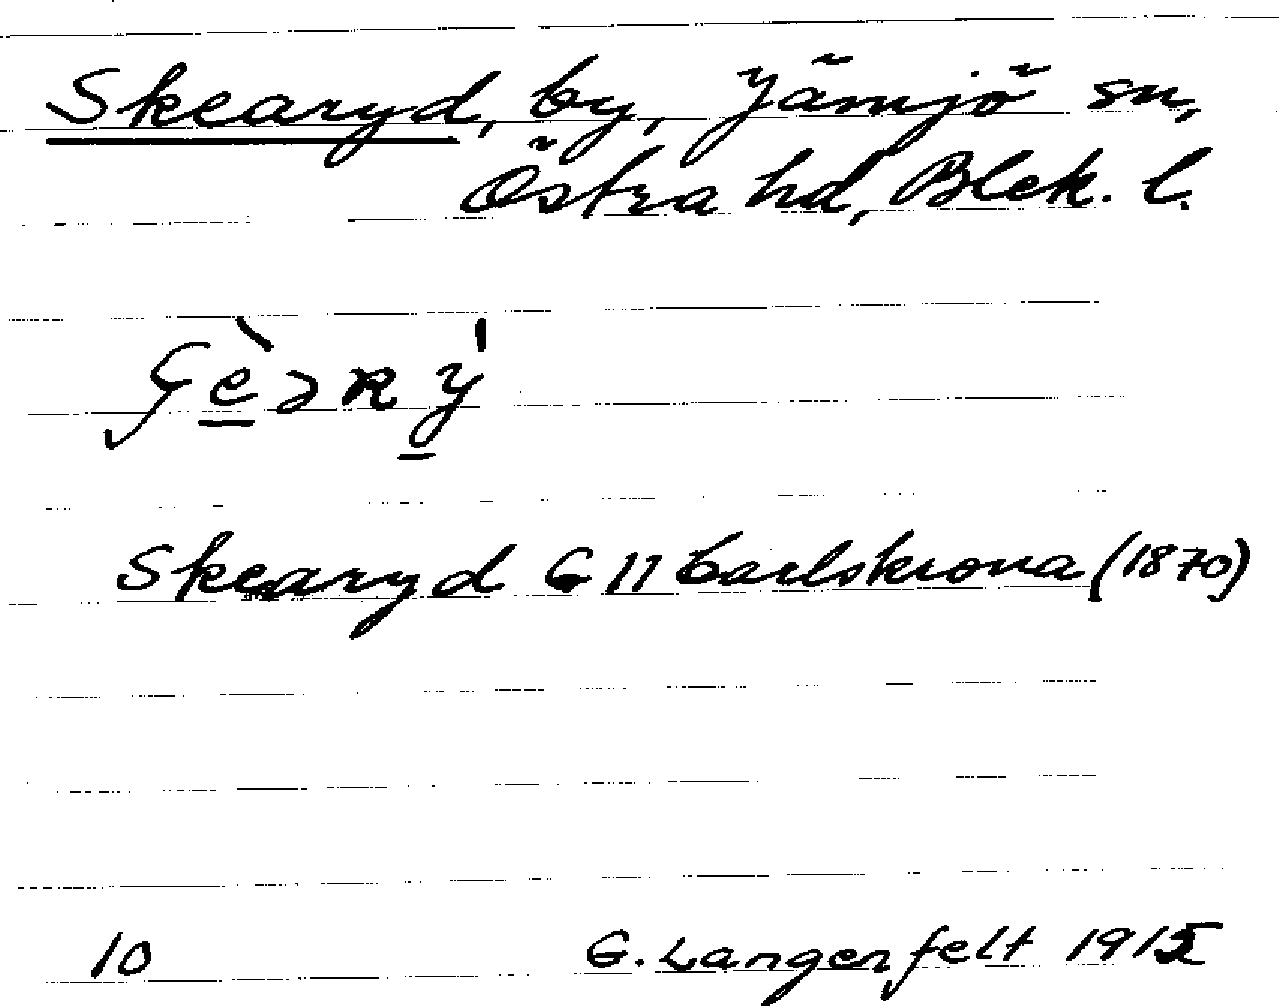 Skearyd, by, Jämjö sn,
Östra hd, Blek. l.
Skearyd G 11 Carlskrona (1870)
10 G. Langenfelt 1915